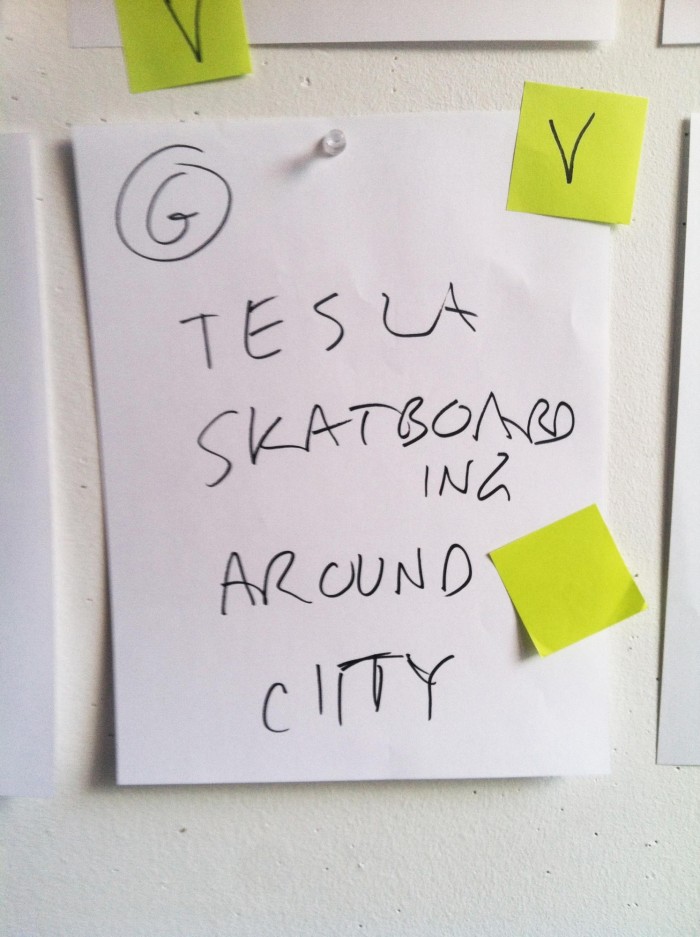 V
V
G
TESLA
SKATBOARD
ING
AROUND
CITY